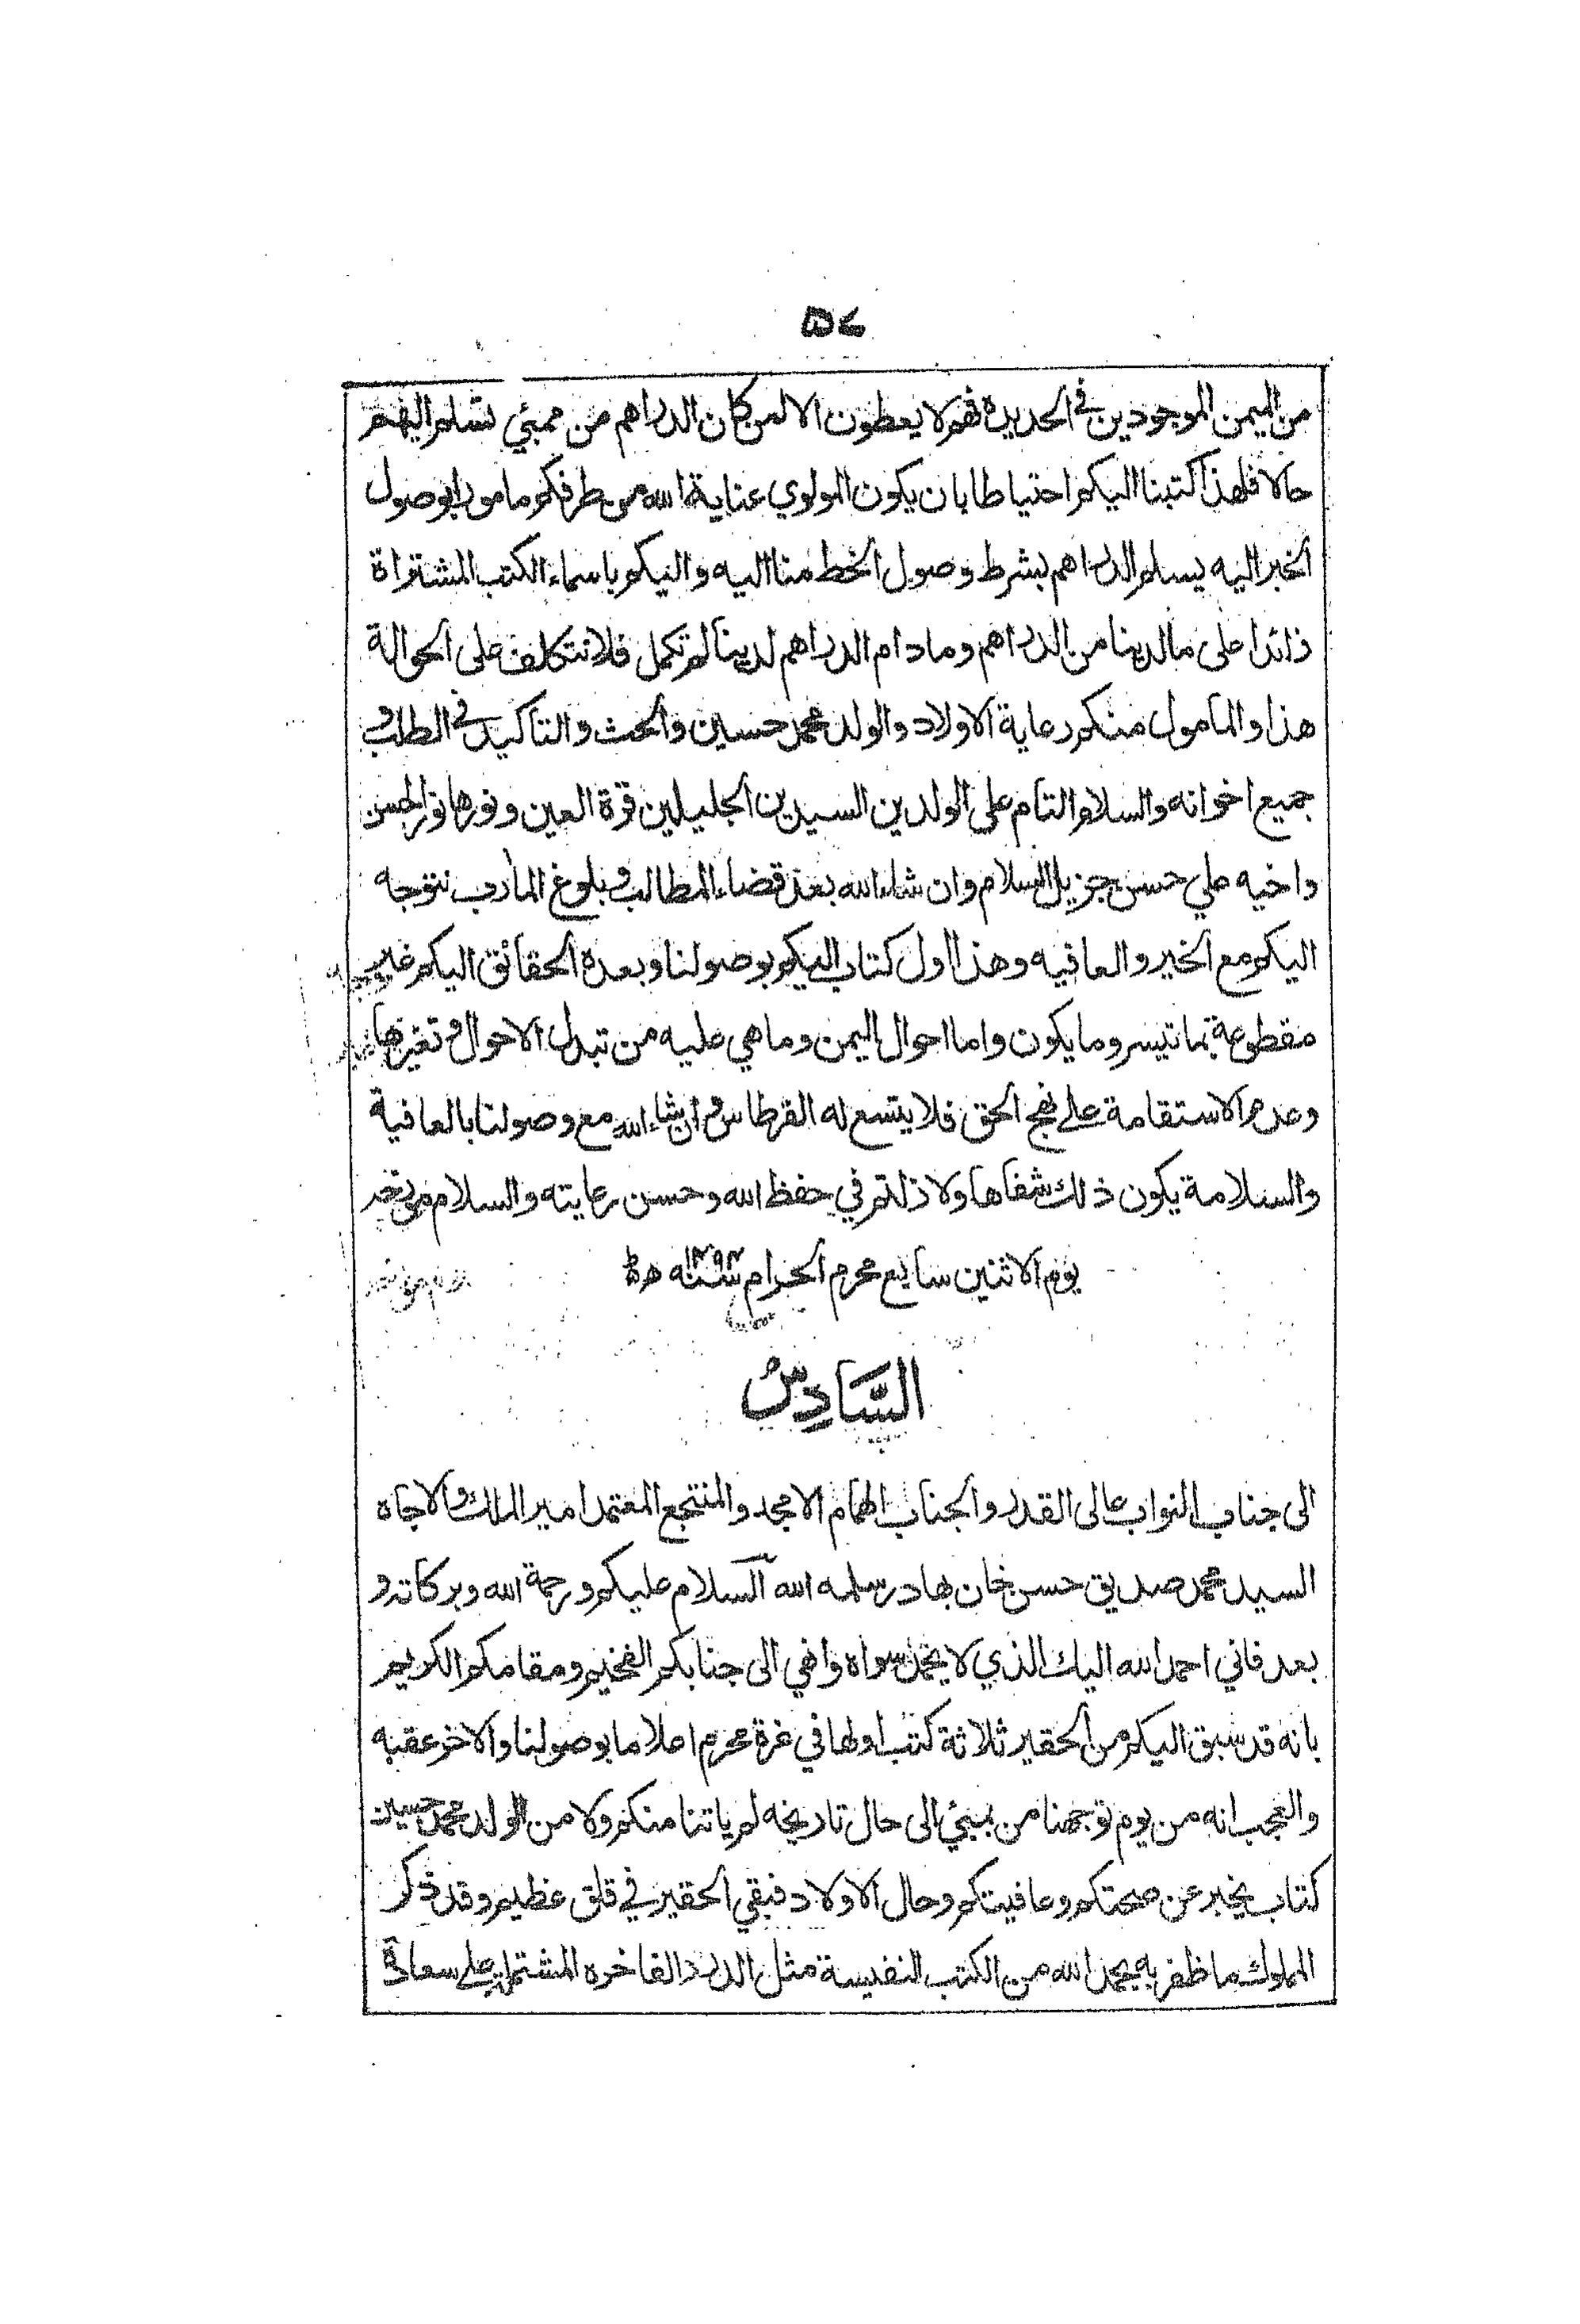 ٥٧
من اليمن الموجودين في الحديده فهم لا يعطون الا لمن كان الدراهم من ممبئي تسلم اليهم
حالا فلهذا كتبنا اليكم احتياطا بان يكون المولوي عناية الله من طرفكم مامورا بوصول
الخبر اليه يسلم الدراهم بشرط وصول الخط منا اليه واليكم باسماء الكتب المشتراة
زائدا على ما لدينا من الدراهم وما دام الدراهم لدينا لم تكمل فلا نتكلف على الحوالة
هذا والمامول منكم رعاية الاولاد والولد محمد حسين والحث والتاكيد في الطلب و
جميع اخوانه والسلام التام على الولدين السيدين الجليلين قرة العين ونورها نور الحسن
واخيه علي حسن جزيل السلام وان شاء الله بعد قضاء المطالب وبلوغ المارب نتوجه
اليكم مع الخير والعافيه وهذا اول كتاب اليكم بوصولنا وبعده الحقائق اليكم غير
مقطوعة بما تيسر وما يكون واما احوال اليمن وما هي عليه من تبدل الاحوال وتغيرها
وعدم الاستقامة على نهج الحق فلا يتسع له القرطاس وان شاء الله مع وصولنا بالعافية
والسلامة يكون ذلك شفاها ولا زلتم في حفظ الله وحسن رعايته والسلام
يوم الاثنين سابع محرم الحرام سنه ۱۲۹۳ ه
السَّادِسُ
الى جناب النواب عالى القدر والجناب الهمام الامجد والمنتجع المعتمد امير الملك والاجاه
السيد محمد صديق حسن خان بهادر سلمه الله السلام عليكم ورحمة الله وبركاته و
بعد فاني احمد الله اليك الذي لا يحمد سواه وانهي الى جنابكم الفخيم ومقامكم الكريم
بانه قد سبق اليكم من الحقير ثلاثة كتب اولها في غرة محرم اعلاما بوصولنا والاخر عقبه
والعجب انه من يوم توجهنا من بمبئي الى حال تاريخه لم ياتنا منكم ولا من الولد محمد حسين
كتاب يخبر عن صحتكم وعافيتكم وحال الاولاد فبقي الحقير في قلق عظيم وقد ذكر
المملوك ما ظفر به بحمد الله من الكتب النفيسة مثل الدرر الفاخره المشتملة على سعادة